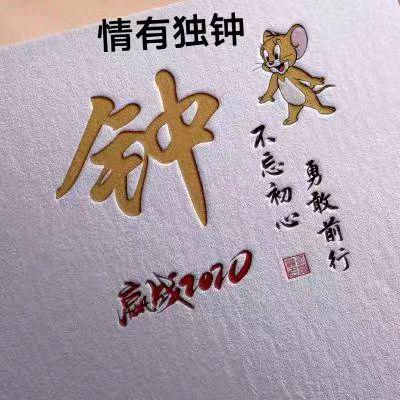 情有独钟
钟
不忘初心
勇敢前行
赢战2020